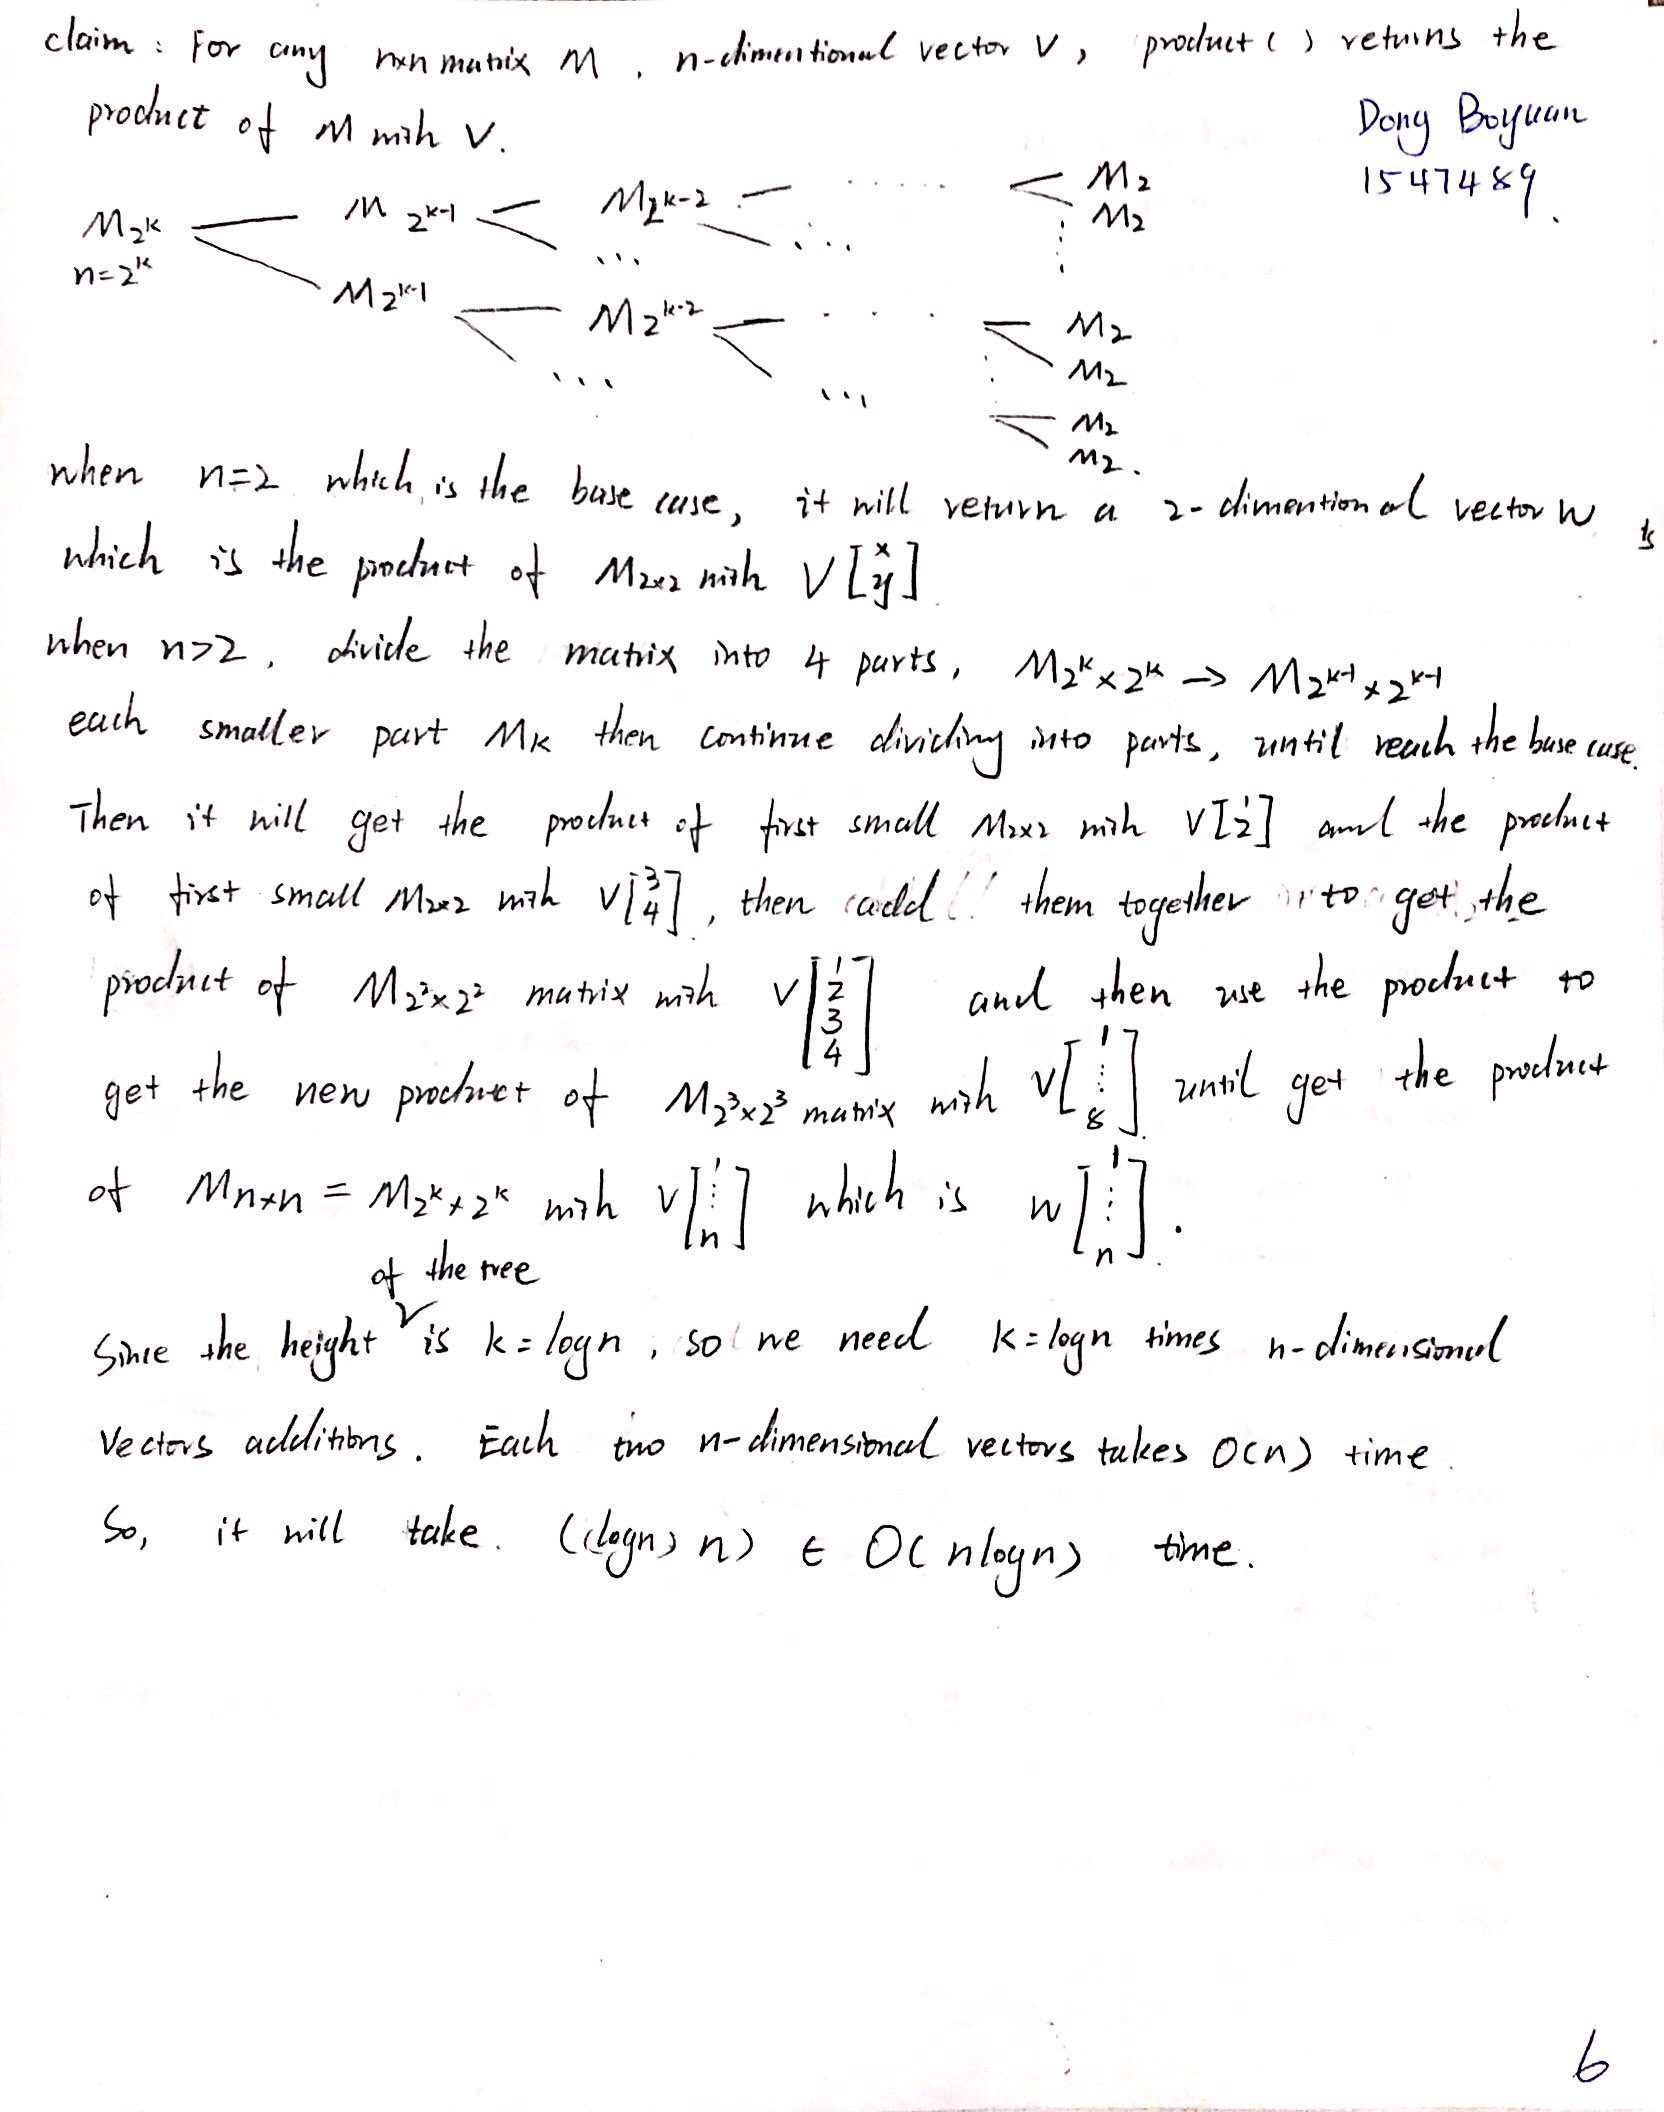 claim : For any nxn matrix M , n-dimentional vector V , product ( ) returns the
product of M with V.
Dong Boyuan
1547489.
M2^k — M 2^k-1 < M2^k-2 — ..... < M2
M2
n=2^k
...
...
M2^k-1 — M2^k-2 — .... — M2
M2
...
...
M2
M2.
when n=2 which is the base case, it will return a 2-dimentional vector W
which is the product of M2x2 with V [x y]
when n>2, divide the matrix into 4 parts, M2^k x 2^k → M2^k-1 x 2^k-1
each smaller part MK then continue dividing into parts, until reach the base case.
Then it will get the product of first small M2x2 with V[1 2] and the product
of first small M2x2 with V[3 4], then add them together to get the
product of M2^2 x 2^2 matrix with V[1 2 3 4] and then use the product to
get the new product of M2^3 x 2^3 matrix with V[1 ⋮ 8] until get the product
of Mnxn = M2^k x 2^k with V[1 ⋮ n] which is W[1 ⋮ n].
of the tree
Since the height is k = logn , so we need k = logn times n-dimensional
Vectors additions. Each two n-dimensional vectors takes O(n) time.
So, it will take. ((logn) n) ∈ O( nlogn) time.
6